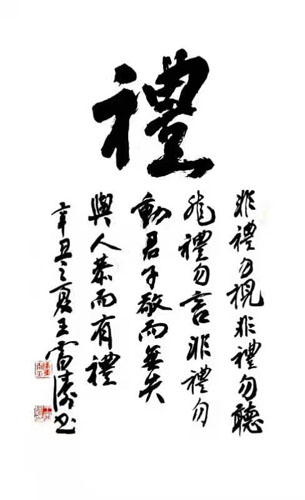 禮
非禮勿視非禮勿聽
非禮勿言非禮勿
動君子敬而無失
與人恭而有禮
辛丑之夏王雷濤书